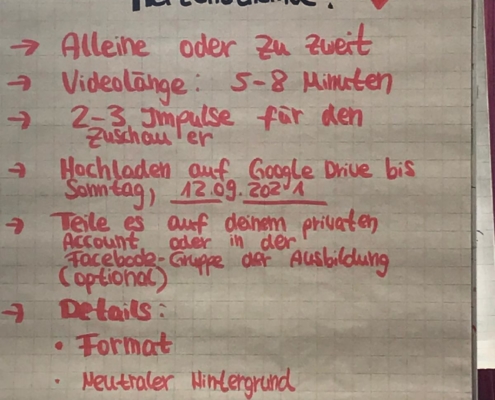 → Alleine oder zu zweit
→ Videolänge: 5-8 Minuten
→ 2-3 Impulse für den
Zuschauer
→ Hochladen auf Google Drive bis
Sonntag, 12.09.2021
→ Teile es auf deinem privaten
Account oder in der
Facebook-Gruppe der Ausbildung
(optional)
→ Details:
• Format
• Neutraler Hintergrund